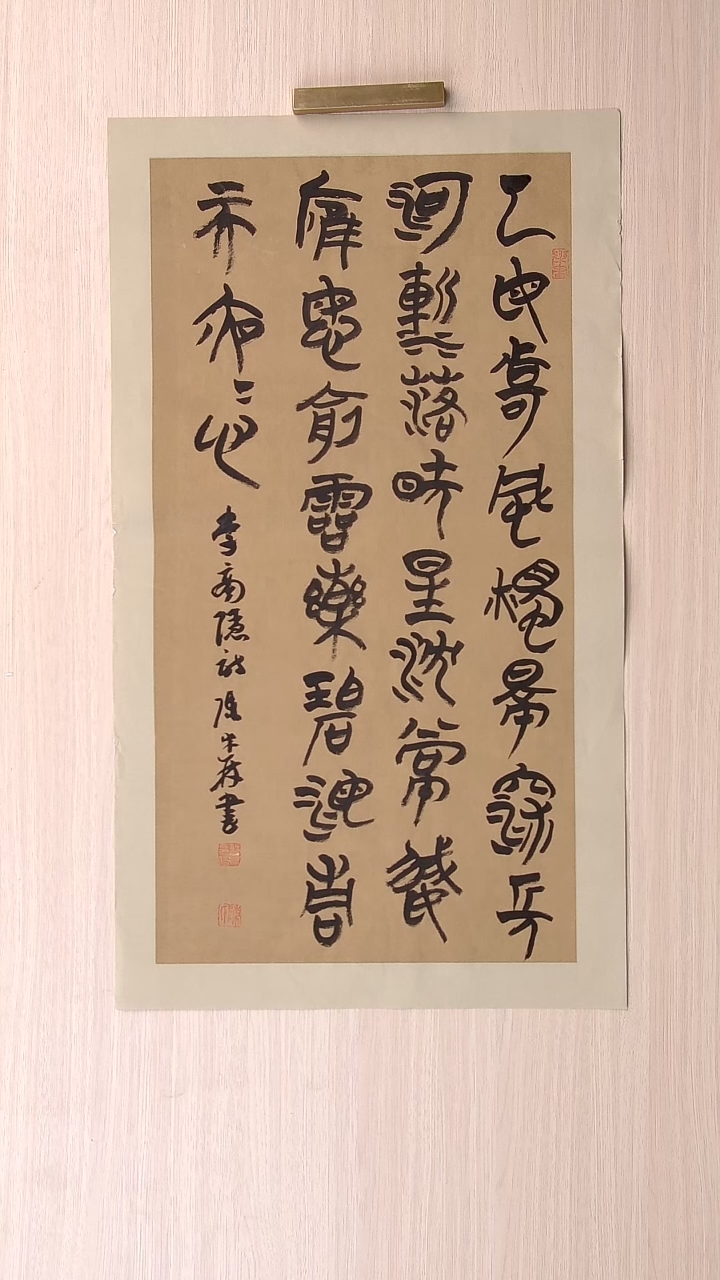 云母屏風燭影深長
河漸落曉星沈常娥
應悔偷靈藥碧海青
天夜〻心 李商隱詩 書